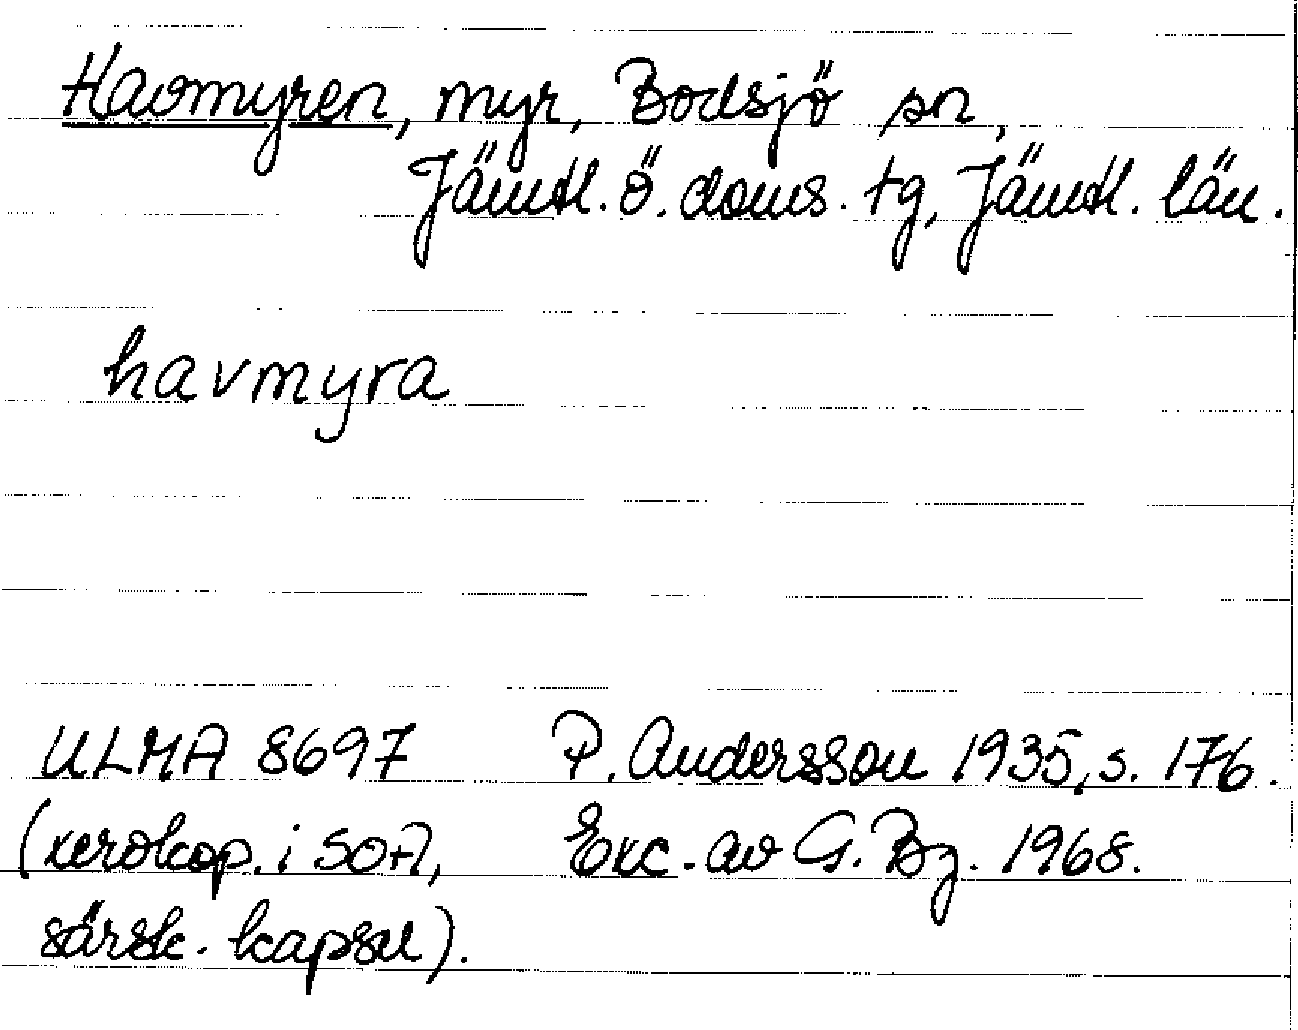 Havmyren, myr, Bodsjö sn,
Jämtl. ö. doms. tg, Jämtl. län.
havmyra
ULMA 8697 P. Andersson 1935, s. 176.
(xerokop. i SOA, Exc. av G. Bg. 1968.
särsk. kapsel).